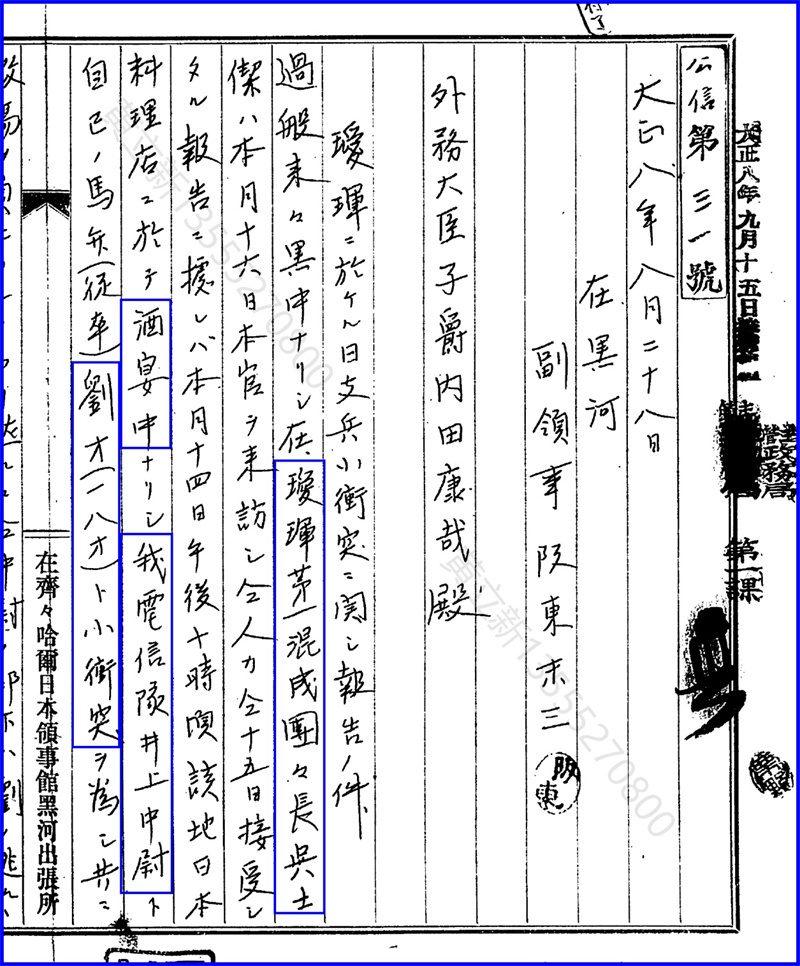 大正八年九月十五日接
主管政務局
第一課
公信第三一號
大正八年八月二十八日
在黑河
副領事阪東末三
阪東
外務大臣子爵内田康哉殿
瑷琿ニ於ケル日支兵小衝突ニ関シ報告ノ件
過般来々黒中ナリシ在瑷琿第一混成團々長吳士
傑ハ本月十六日本官ヲ来訪シ仝人カ仝十五日接受シ
タル報告ニ據レバ本月十四日午後十時頃該地日本
料理店ニ於テ酒宴中ナリシ我電信隊井上中尉ト
自己ノ馬弁(従卒)劉才(一八才)ト小衝突ヲ為シ共ニ
在齊々哈爾日本領事館黑河出張所
莫立新1355270800
莫立新1355270800